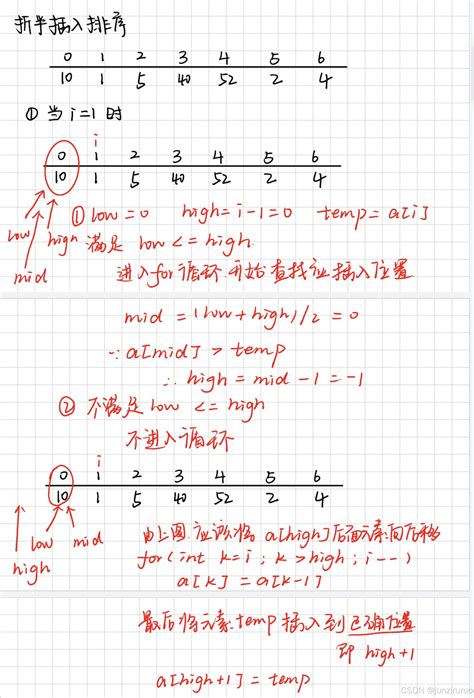 折半插入排序
0 1 2 3 4 5 6
10 1 5 40 52 2 4
① 当 i=1 时
i
0 1 2 3 4 5 6
10 1 5 40 52 2 4
① low = 0 high = i-1 = 0 temp = a[i]
low high 满足 low <= high.
mid 进入for循环.开始查找应插入位置
mid = (low + high)/2 = 0
∵ a[mid] > temp
∴ high = mid - 1 = -1
② 不满足 low <= high
不进入循环
i
0 1 2 3 4 5 6
10 1 5 40 52 2 4
low mid 由上图.应该将 a[high]后面元素向后移
high for(int k=i; k>high; i--)
a[k] = a[k-1]
最后将元素temp插入到正确位置
即 high+1
a[high+1] = temp
CSDN @junziruruo